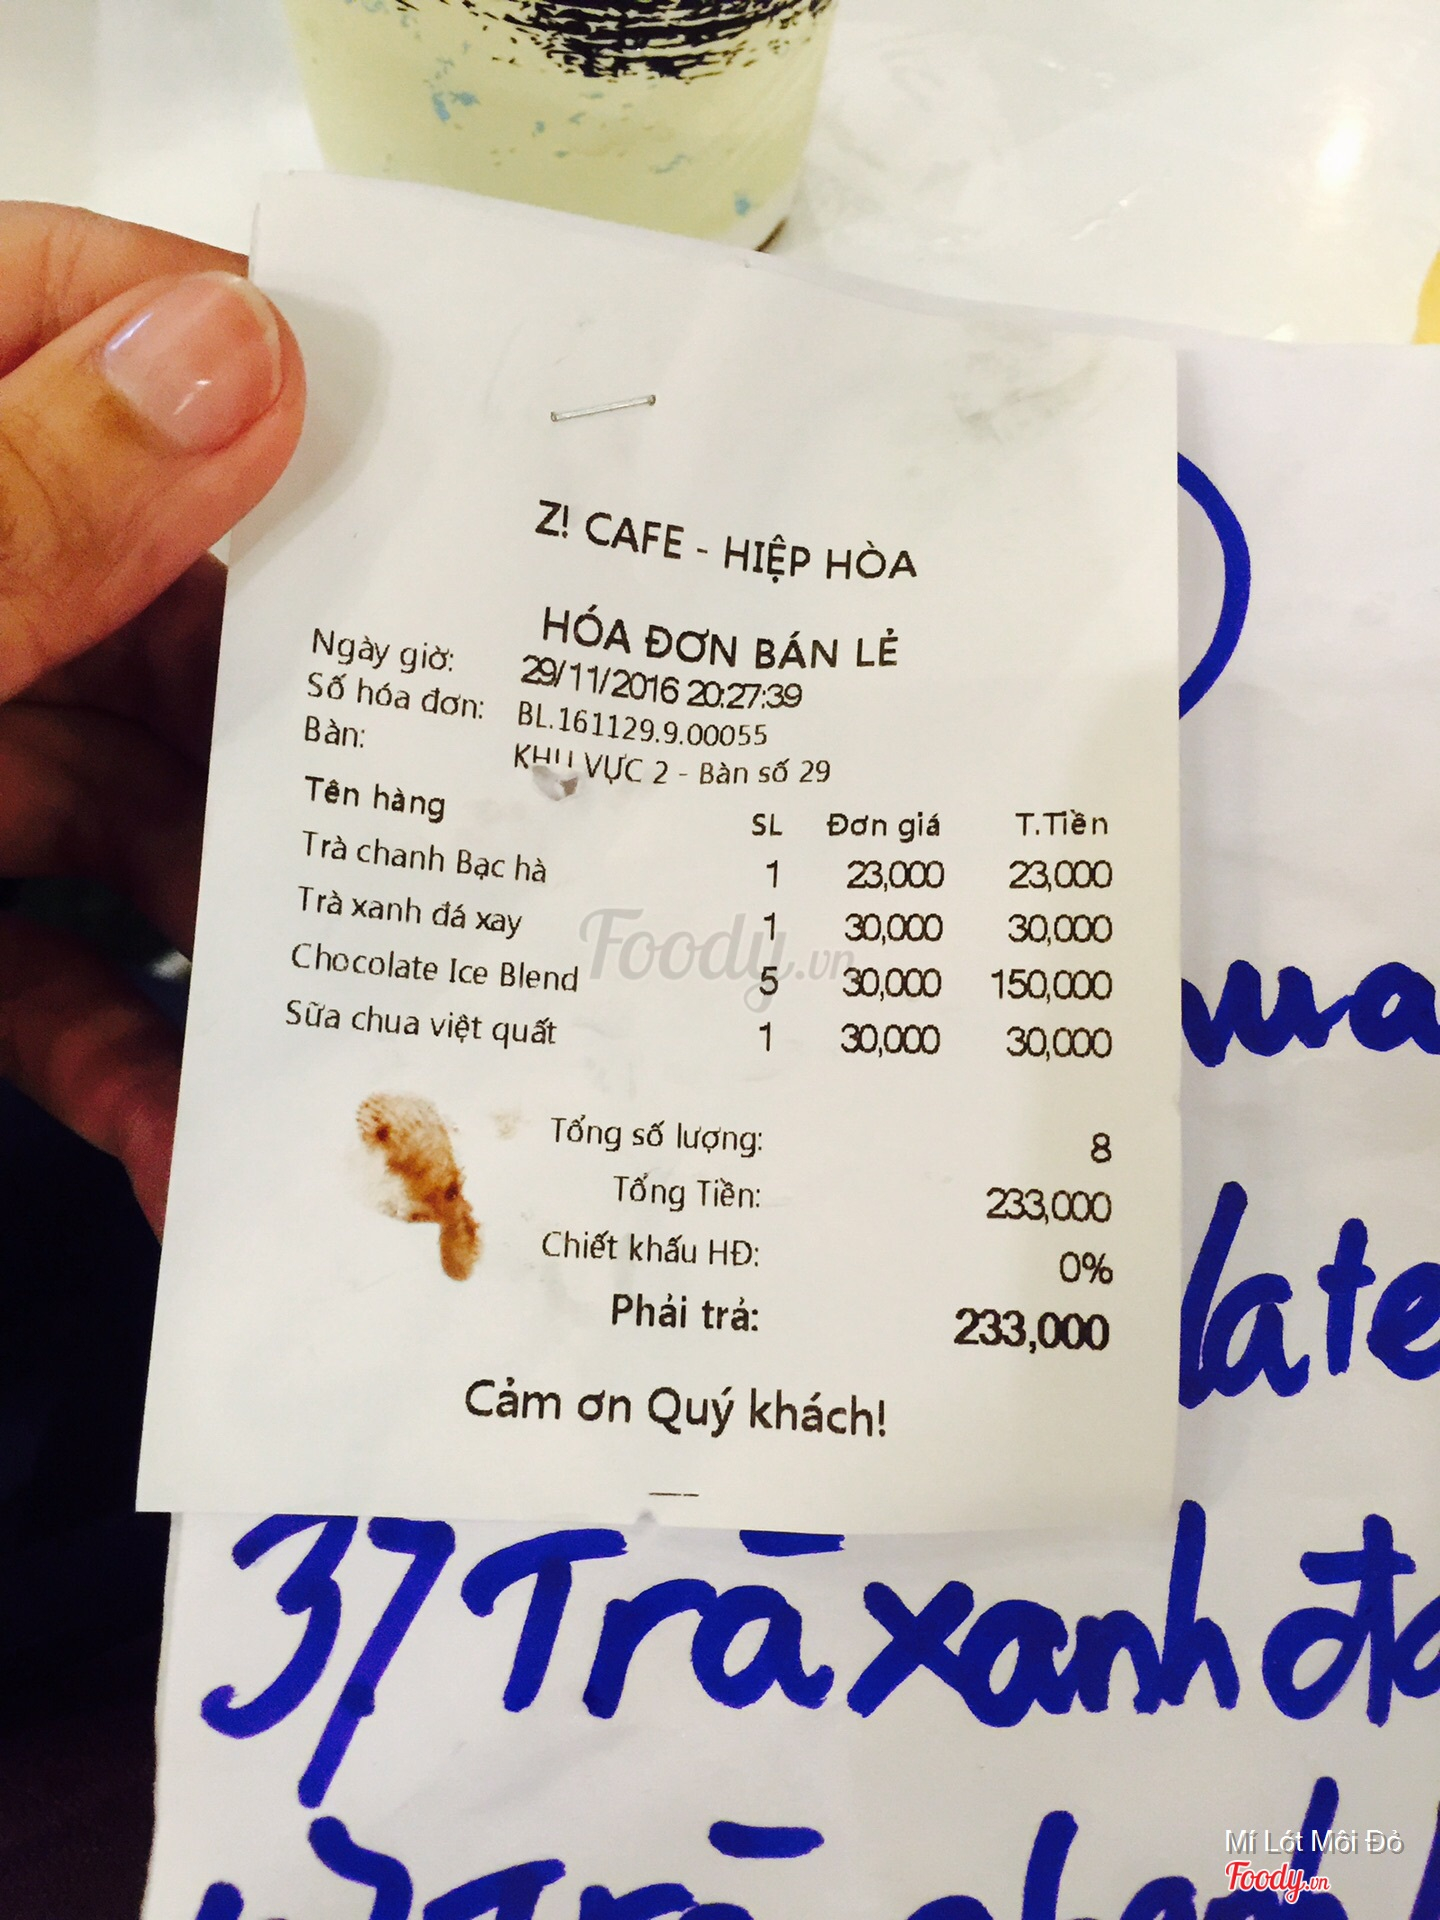 Z! CAFE - HIỆP HÒA
HÓA ĐƠN BÁN LẺ
Ngày giờ: 29/11/2016 20:27:39
Số hóa đơn: BL.161129.9.00055
Bàn: KHU VỰC 2 - Bàn số 29
Tên hàng SL Đơn giá T.Tiền
Trà chanh Bạc hà 1 23,000 23,000
Trà xanh đá xay 1 30,000 30,000
Chocolate Ice Blend 5 30,000 150,000
Sữa chua việt quất 1 30,000 30,000
Tổng số lượng: 8
Tổng Tiền: 233,000
Chiết khấu HĐ: 0%
Phải trả: 233,000
Cảm ơn Quý khách!
Foody.vn
late
3/ Trà xanh đá
Trà
Mí Lót Môi Đỏ
Foody.vn